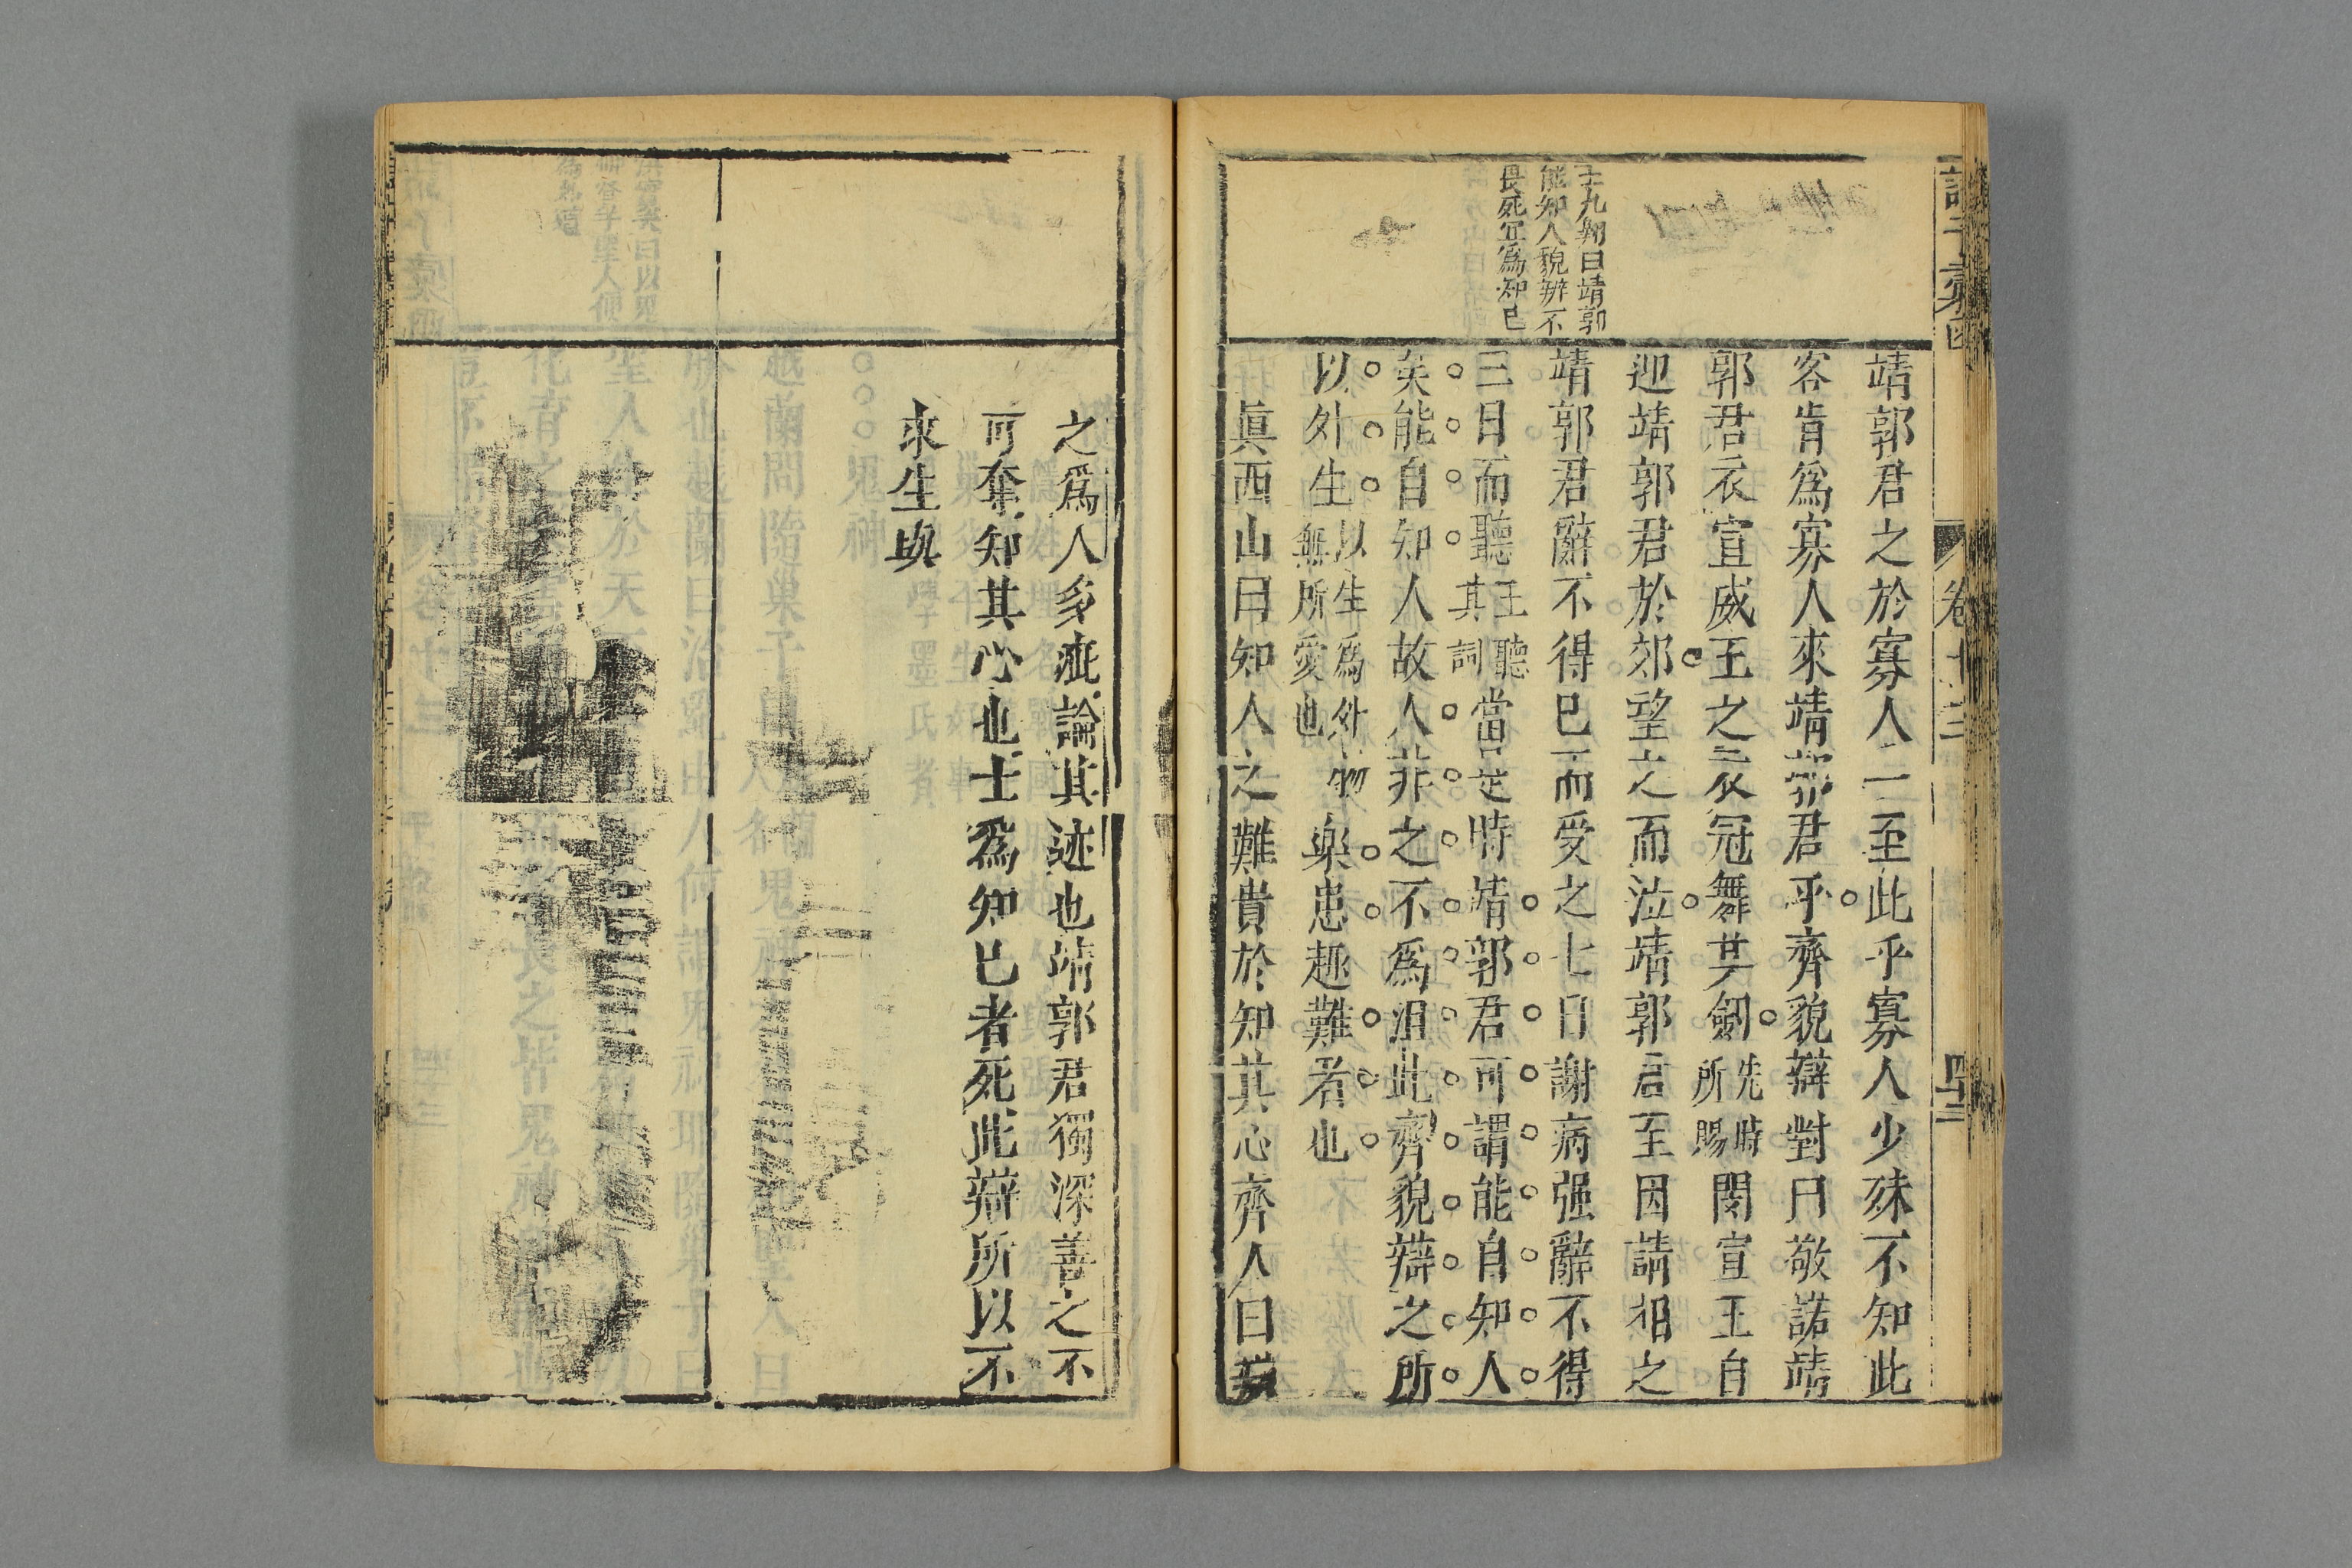 王九翱曰靖郭
能知人貌辨不
畏死宜爲知已
靖郭君之於寡人一至此乎寡人少殊不知此
客肯爲寡人來靖郭君乎齊貌辯對曰敬諾靖
郭君衣宣威王之衣冠舞其劒先時所賜閔宣王自
迎靖郭君於郊望之而泣靖郭君至因請相之
靖郭君辭不得已而受之七日謝病强辭不得
三日而聽王聽其詞當是時靖郭君可謂能自知人
矣能自知人故人非之不爲沮此齊貌辯之所
以外生以生爲外物無所愛也樂患趣難者也
眞西山曰知人之難貴於知其心齊人曰
之爲人多疵論其迹也靖郭君獨深善之不
可奪知其心也士爲知已者死此辯所以不
求生與
卷十三
四十三